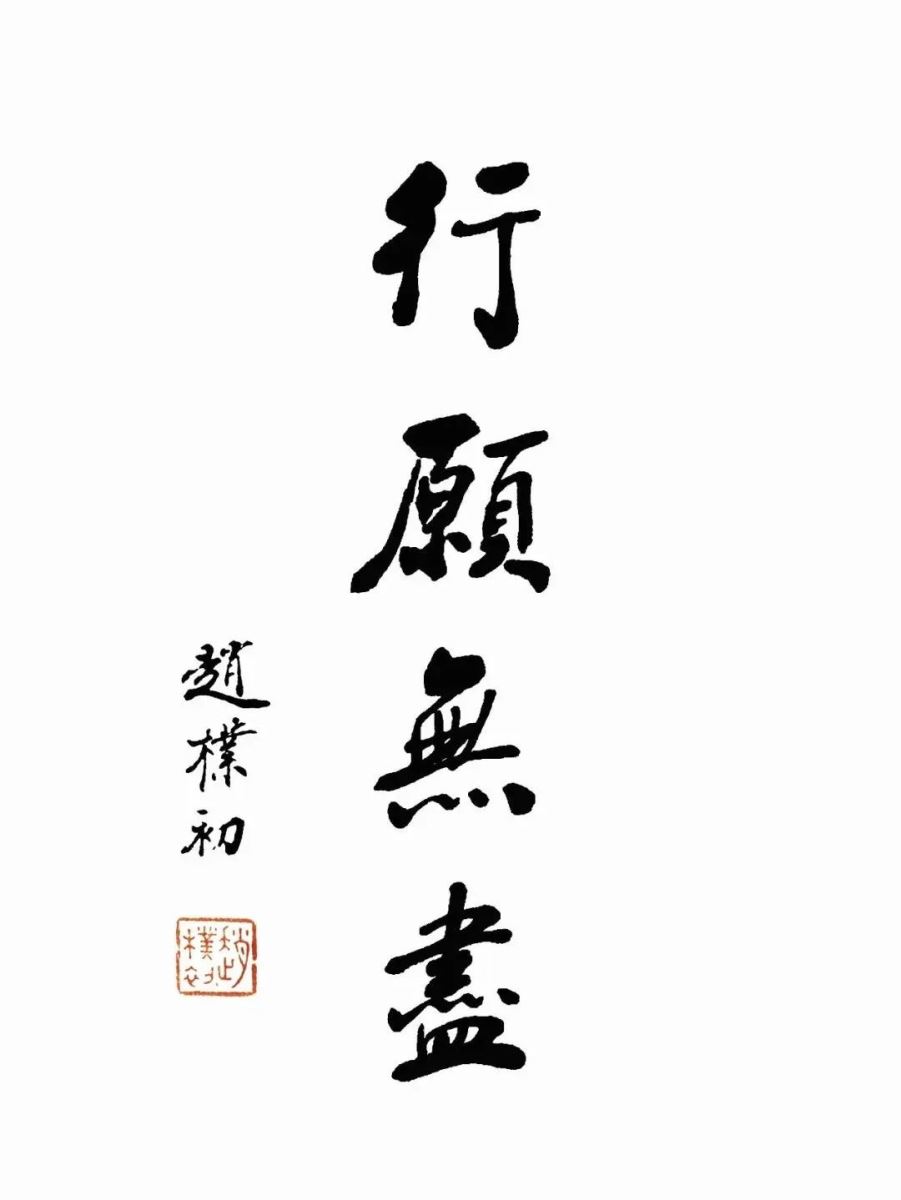 行願無盡
趙樸初
趙樸初